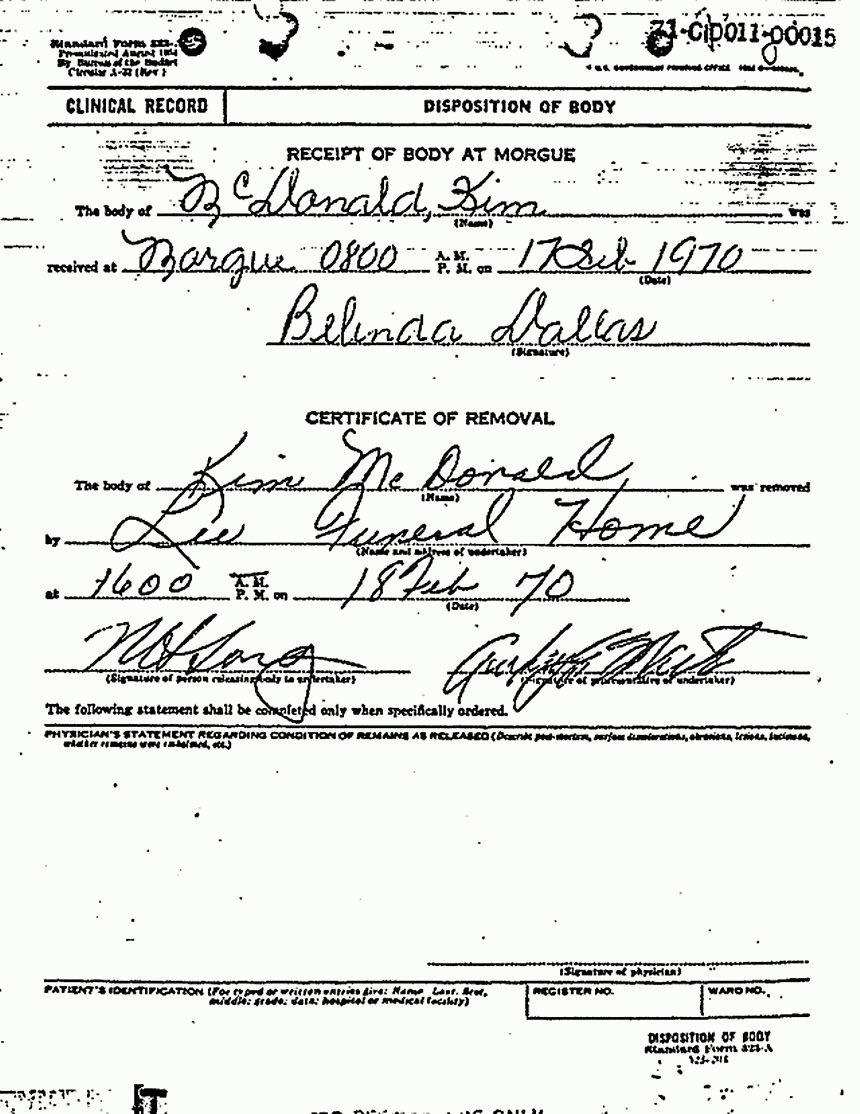 Standard Form 523-A
Promulgated August 1954
By Bureau of the Budget
Circular A-32 (Rev.)
71-CID011-00015
CLINICAL RECORD
DISPOSITION OF BODY
RECEIPT OF BODY AT MORGUE
The body of McDonald, Kim was
(Name)
received at Morgue 0800 A. M.
P. M. on 17 Feb 1970
(Date)
Belinda Dallas
(Signature)
CERTIFICATE OF REMOVAL
The body of Kim McDonald was removed
(Name)
by Lee Funeral Home
(Name and address of undertaker)
at 1600 A. M.
P. M. on 18 Feb 70
(Date)
(Signature of person releasing body to undertaker)
(Signature of representative of undertaker)
The following statement shall be completed only when specifically ordered.
PHYSICIAN'S STATEMENT REGARDING CONDITION OF REMAINS AS RELEASED (Describe post-mortem, surface discolorations, abrasions, lesions, incisions,
whether remains were embalmed, etc.)
(Signature of physician)
PATIENT'S IDENTIFICATION (For typed or written entries give: Name—Last, first,
middle; grade; date; hospital or medical facility)
REGISTER NO.
WARD NO.
DISPOSITION OF BODY
Standard Form 523-A